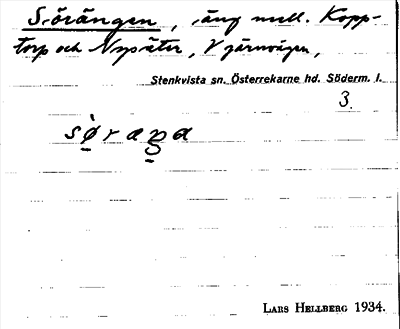 Sörängen, äng mell. Kopp-
torp och Nysäter, V järnvägen,
Stenkvista sn. Österrekarne hd. Söderm. l.
3.
Lars Hellberg 1934.